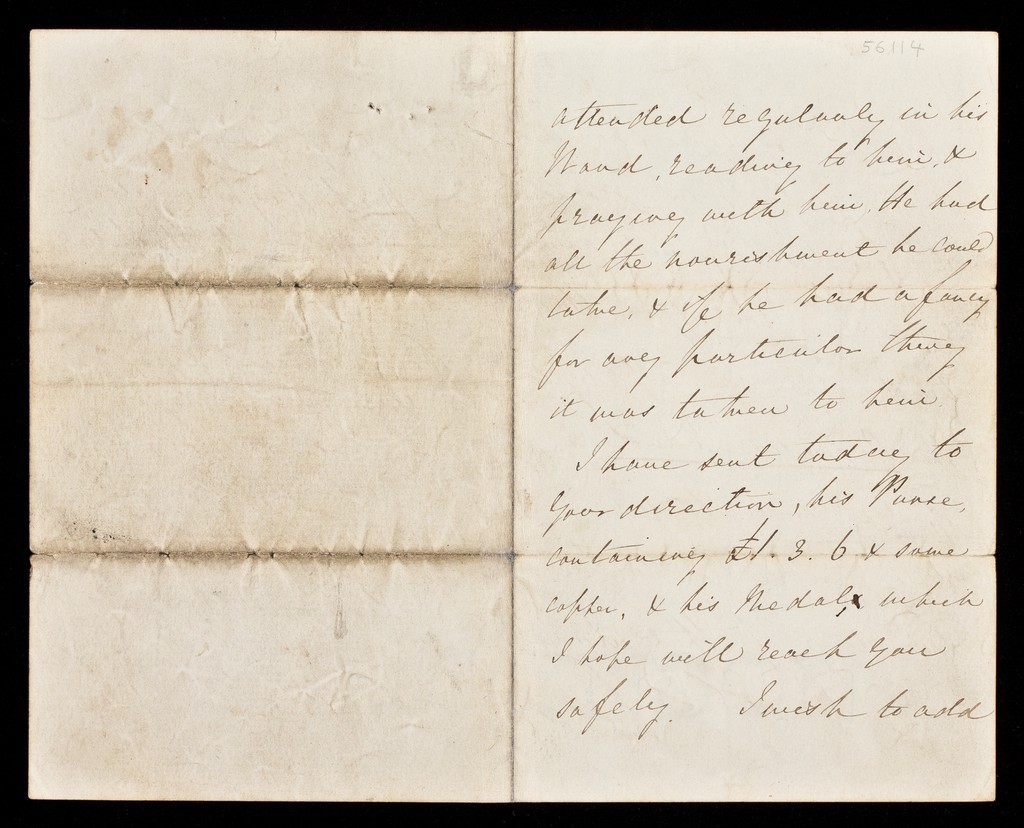 56114
attended regularly in his
Ward, reading to him, &
praying with him. He had
all the nourishment he could
take, & if he had a fancy
for any particular thing
it was taken to him.
I have sent today to
your direction, his Purse,
containing £1. 3. 6 & some
copper, & his Medal, which
I hope will reach you
safely. I wish to add